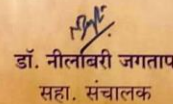 डॉ. नीलांबरी जगताप
सहा. संचालक